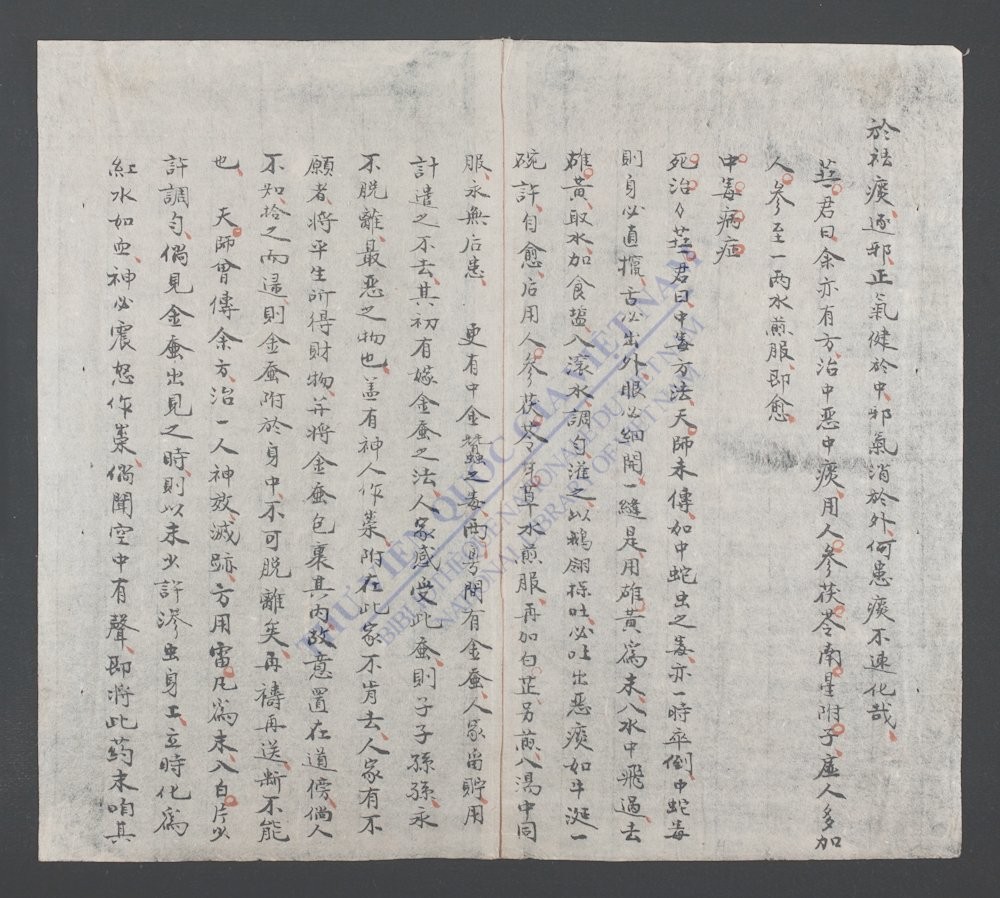 於祛痰逐邪正氣健於中邪氣消於外何患痰不速化哉
君曰余亦有方治中惡中痰用人參茯苓南星附子虛人多加
人參至一兩水煎服即愈
中毒病症
死治々君曰中毒方法天師未傳如中蛇虫之毒亦一時卒倒中蛇毒
則身必直攛舌必出外眼必細開一縫是用雄黃為末入水中飛過去
雄黃取水加食盬入滾水調勻灌之以鵝翎探吐必吐出惡痰如牛涎一
碗許自愈后用人參茯苓甘草水煎服再加白芷另煎入湯中同
服永無后患 更有中金蠶之毒兩粵間有金蚕人家畜貯用
計遣之不去其初有嫁金蚕之法人家感受此蚕則子子孫孫永
不脫離最惡之物也盖有神人作祟附在此家不肯去人家有不
願者將平生所得財物并將金蚕包裹其內故意置在道傍倘人
不知拾之而還則金蚕附於身中不可脫離矣再禱再送斷不能
也 天師曾傳余方治一人神效滅跡方用雷丸為末入白片少
許調勻倘見金蚕出見之時則以末少許滲虫身上立時化為
紅水如血神必震怒作祟倘聞空中有聲即將此药末咱其
THƯ VIỆN QUỐC GIA VIỆT NAM
BIBLIOTHÈQUE NATIONALE DU VIETNAM
NATIONAL LIBRARY OF VIETNAM